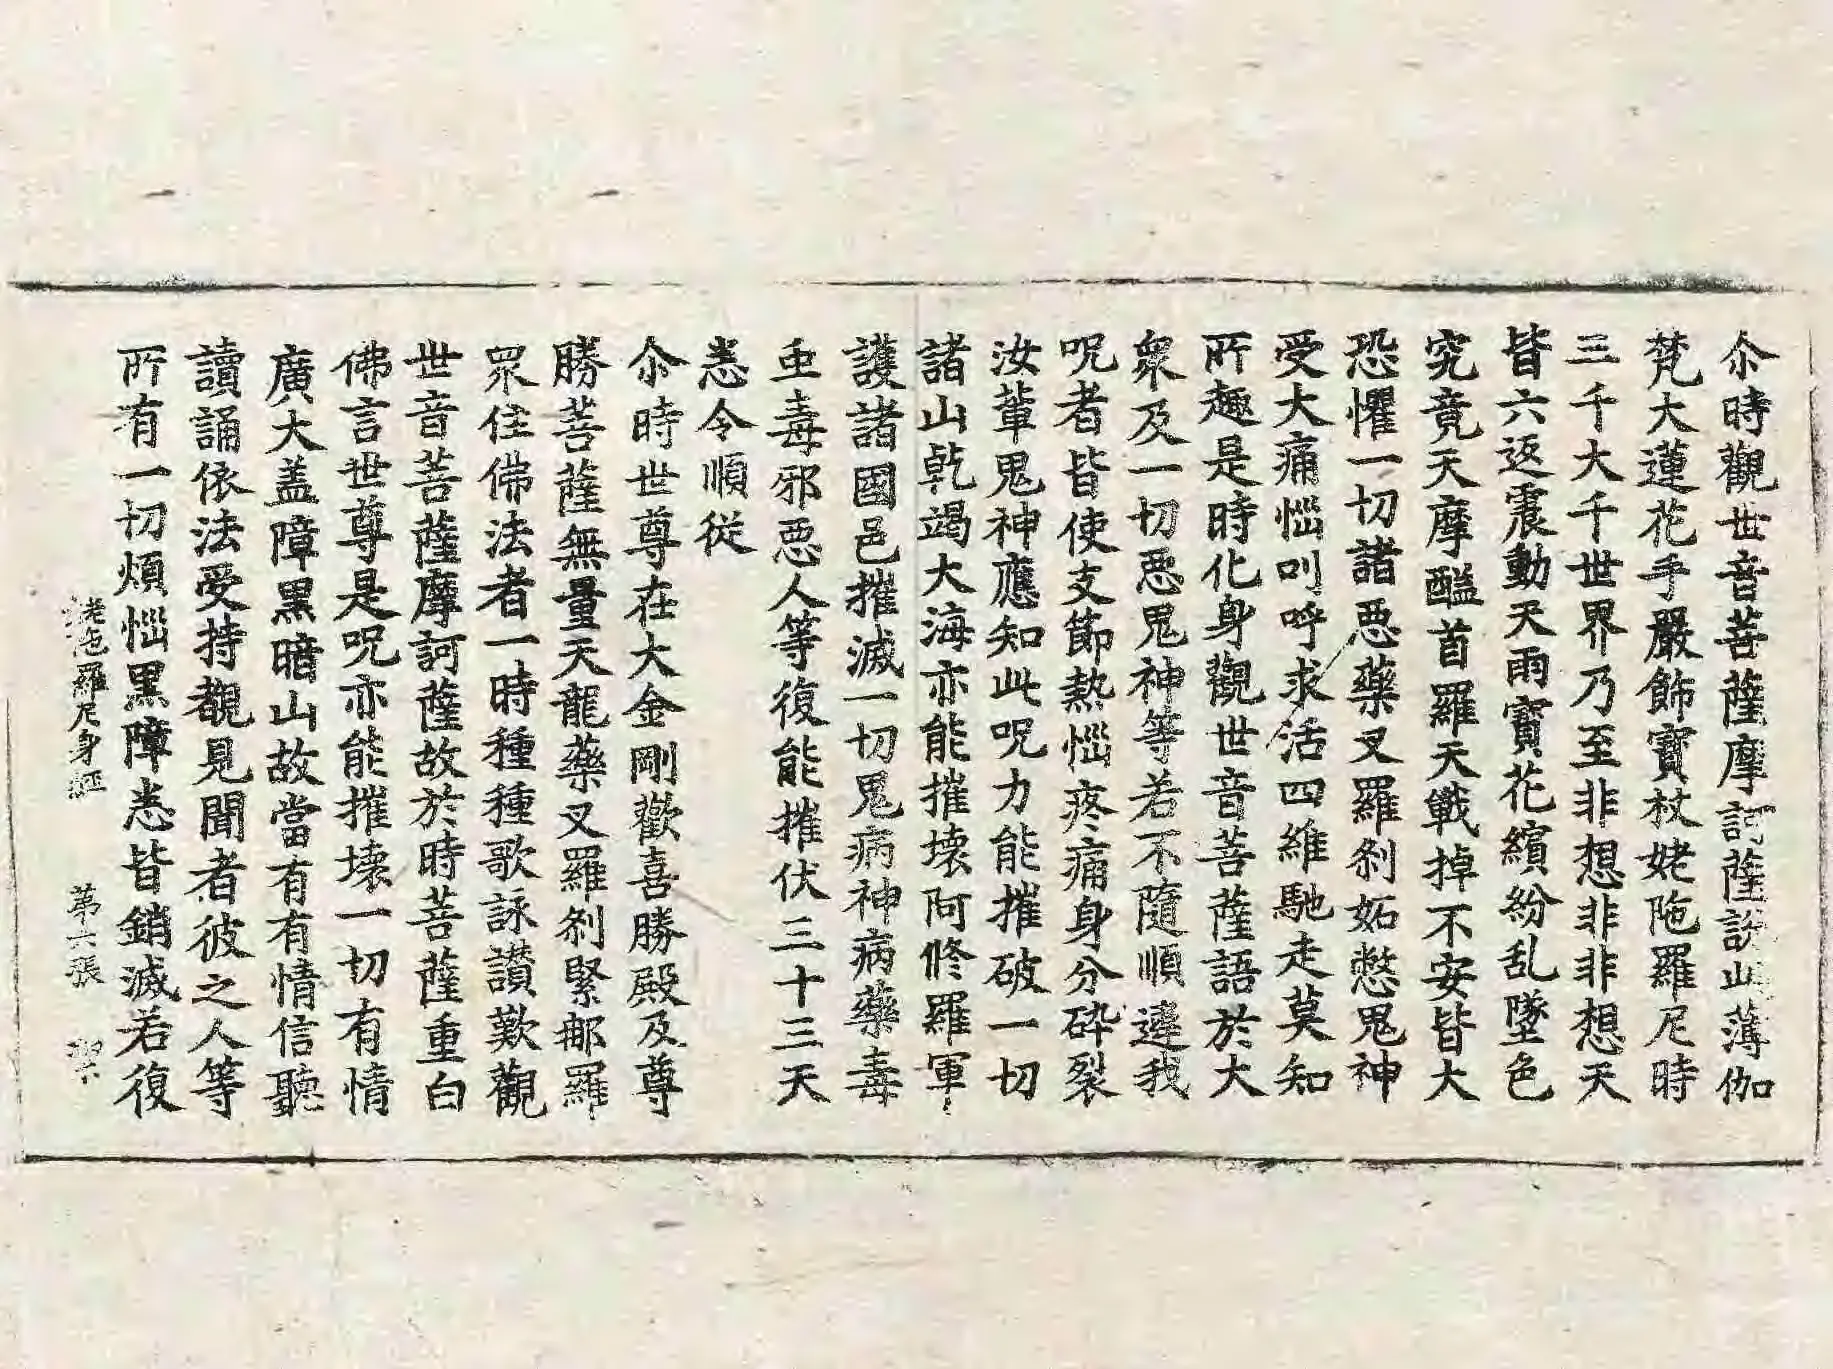 尒時觀世音菩薩摩訶薩說此薄伽
梵大蓮花手嚴飾寶杖姥陁羅尼時
三千大千世界乃至非想非非想天
皆六返震動天雨寶花繽紛乱墜色
究竟天摩醯首羅天戰掉不安皆大
恐懼一切諸惡藥叉羅剎妬憋鬼神
受大痛惱叫呼求活四維馳走莫知
所趣是時化身觀世音菩薩語於大
衆及一切惡鬼神等若不隨順違我
呪者皆使支節熱惱疼痛身分碎裂
汝輩鬼神應知此呪力能摧破一切
諸山乾竭大海亦能摧壞阿修羅軍
護諸國邑摧滅一切鬼病神病藥毒
虫毒邪惡人等復能摧伏三十三天
悉令順從
尒時世尊在大金剛歡喜勝殿及尊
勝菩薩無量天龍藥叉羅剎緊郍羅
眾住佛法者一時種種歌詠讃歎觀
世音菩薩摩訶薩故於時菩薩重白
佛言世尊是呪亦能摧壞一切有情
廣大盖障黑暗山故當有有情信聽
讀誦依法受持覩見聞者彼之人等
所有一切煩惱黑障悉皆銷滅若復
姥陁羅尼身經 第六張